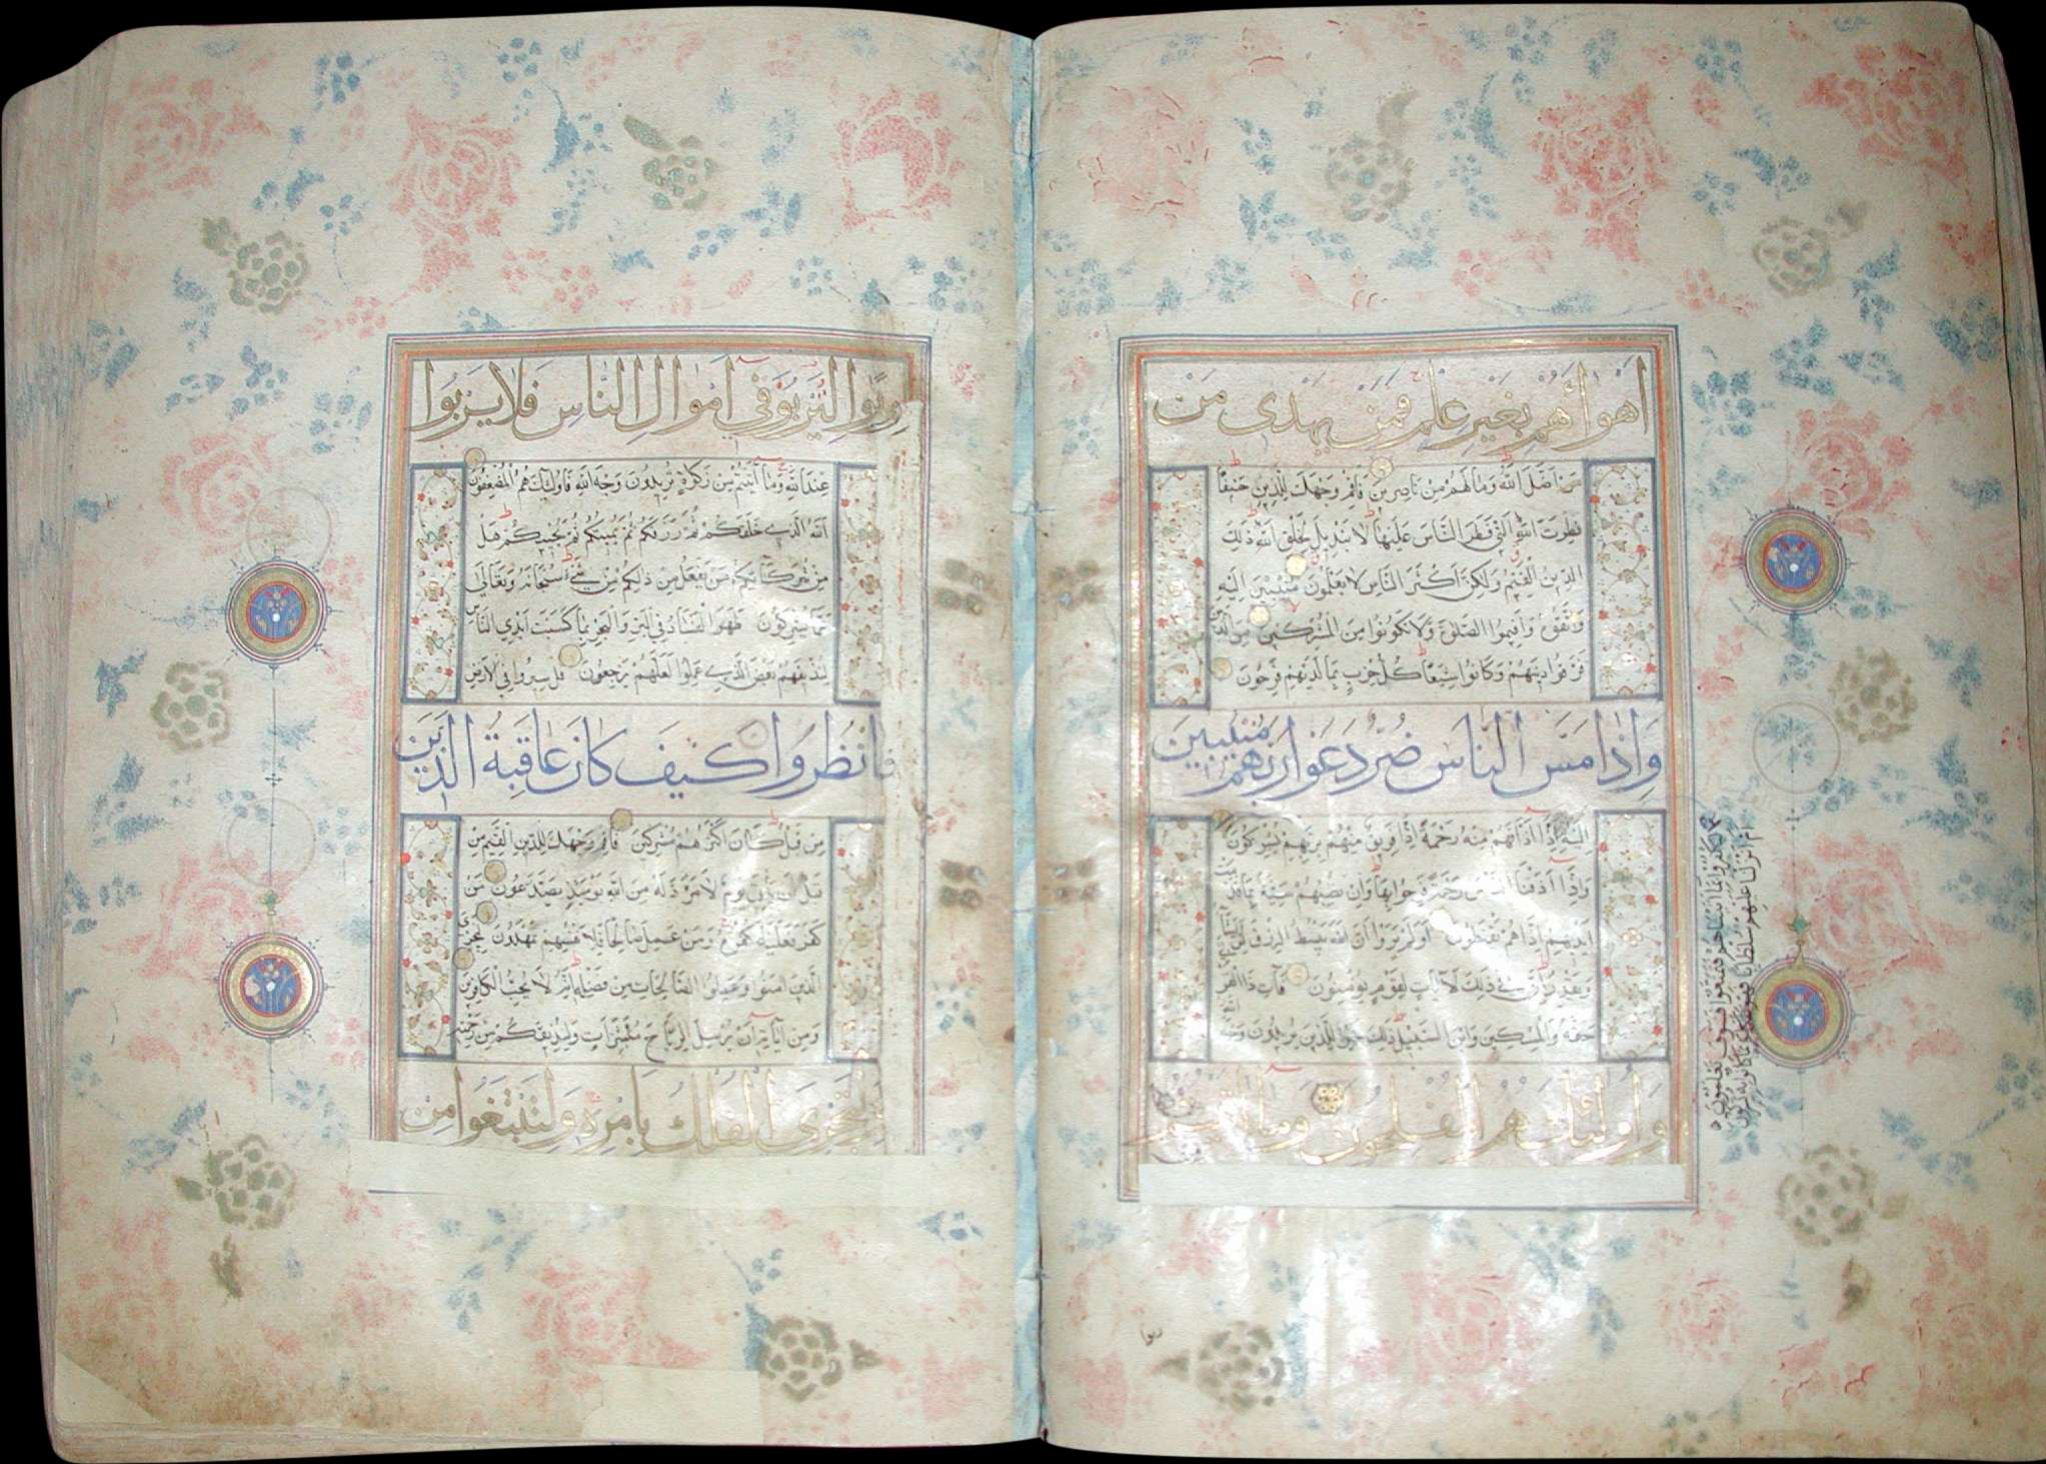 اهواءهم بغير علم فمن يهدى من
من اضل الله وما لهم من ناصرين فاقم وجهك للدين حنيفا
فطرت الله التي فطر الناس عليها لا تبديل لخلق الله ذلك
الدين القيم ولكن اكثر الناس لا يعلمون منيبين اليه
واتقوه واقيموا الصلوة ولا تكونوا من المشركين من الذين
فرقوا دينهم وكانوا شيعا كل حزب بما لديهم فرحون
واذا مس الناس ضر دعوا ربهم منيبين
اليه ثم اذا اذاقهم منه رحمة اذا فريق منهم بربهم يشركون
واذا اذقنا الناس رحمة فرحوا بها وان تصبهم سيئة بما قدمت
ايديهم اذا هم يقنطون اولم يروا ان الله يبسط الرزق لمن يشاء
ويقدر ان في ذلك لآيات لقوم يؤمنون فآت ذا القربى
حقه والمسكين وابن السبيل ذلك خير للذين يريدون وجه الله
واولئك هم المفلحون وما آتيتم من
ليكفروا بما آتيناهم فتمتعوا فسوف تعلمون
ام انزلنا عليهم سلطانا فهو يتكلم بما كانوا به يشركون
ربوا
ربوا ليربو في اموال الناس فلا يربوا
عند الله وما آتيتم من زكوة تريدون وجه الله فاولئك هم المضعفون
الله الذي خلقكم ثم رزقكم ثم يميتكم ثم يحييكم هل
من شركائكم من يفعل من ذلكم من شيء سبحانه وتعالى
عما يشركون ظهر الفساد في البر والبحر بما كسبت ايدي الناس
ليذيقهم بعض الذي عملوا لعلهم يرجعون قل سيروا في الارض
فانظروا كيف كان عاقبة الذين
من قبل كان اكثرهم مشركين فاقم وجهك للدين القيم من
قبل ان يأتي يوم لا مرد له من الله يومئذ يصدعون من
كفر فعليه كفره ومن عمل صالحا فلانفسهم يمهدون ليجزي
الذين آمنوا وعملوا الصالحات من فضله انه لا يحب الكافرين
ومن آياته ان يرسل الرياح مبشرات وليذيقكم من رحمته
ولتجري الفلك بامره ولتبتغوا من